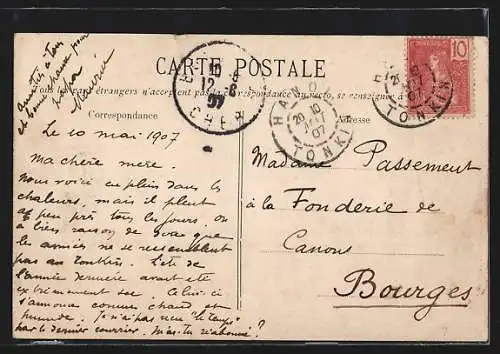 CARTE POSTALE
Tous les pays étrangers n'acceptent pas la correspondance au recto, se renseigner
Correspondance
Adresse
10
12 - 8
07
CHER
HANOI
20 10
MAI
07
TONKIN
20
MAI
07
TONKIN
10
et bonne chance pour
Maurice
Le 10 mai 1907
Ma chère mère.
Nous voici en plein dans les
chaleurs, mais il pleut
à peu près tous les jours. On
a bien raison de dire que
les années ne se ressemblent
pas au Tonkin. L'été de
l'année dernière avait été
extrêmement sec. Celui-ci
s'annonce comme chaud et
humide. Je n'ai pas reçu "le temps"
par le dernier courrier. M'as-tu réabonné ?
Madame Passement
à la Fonderie de
Canons
Bourges